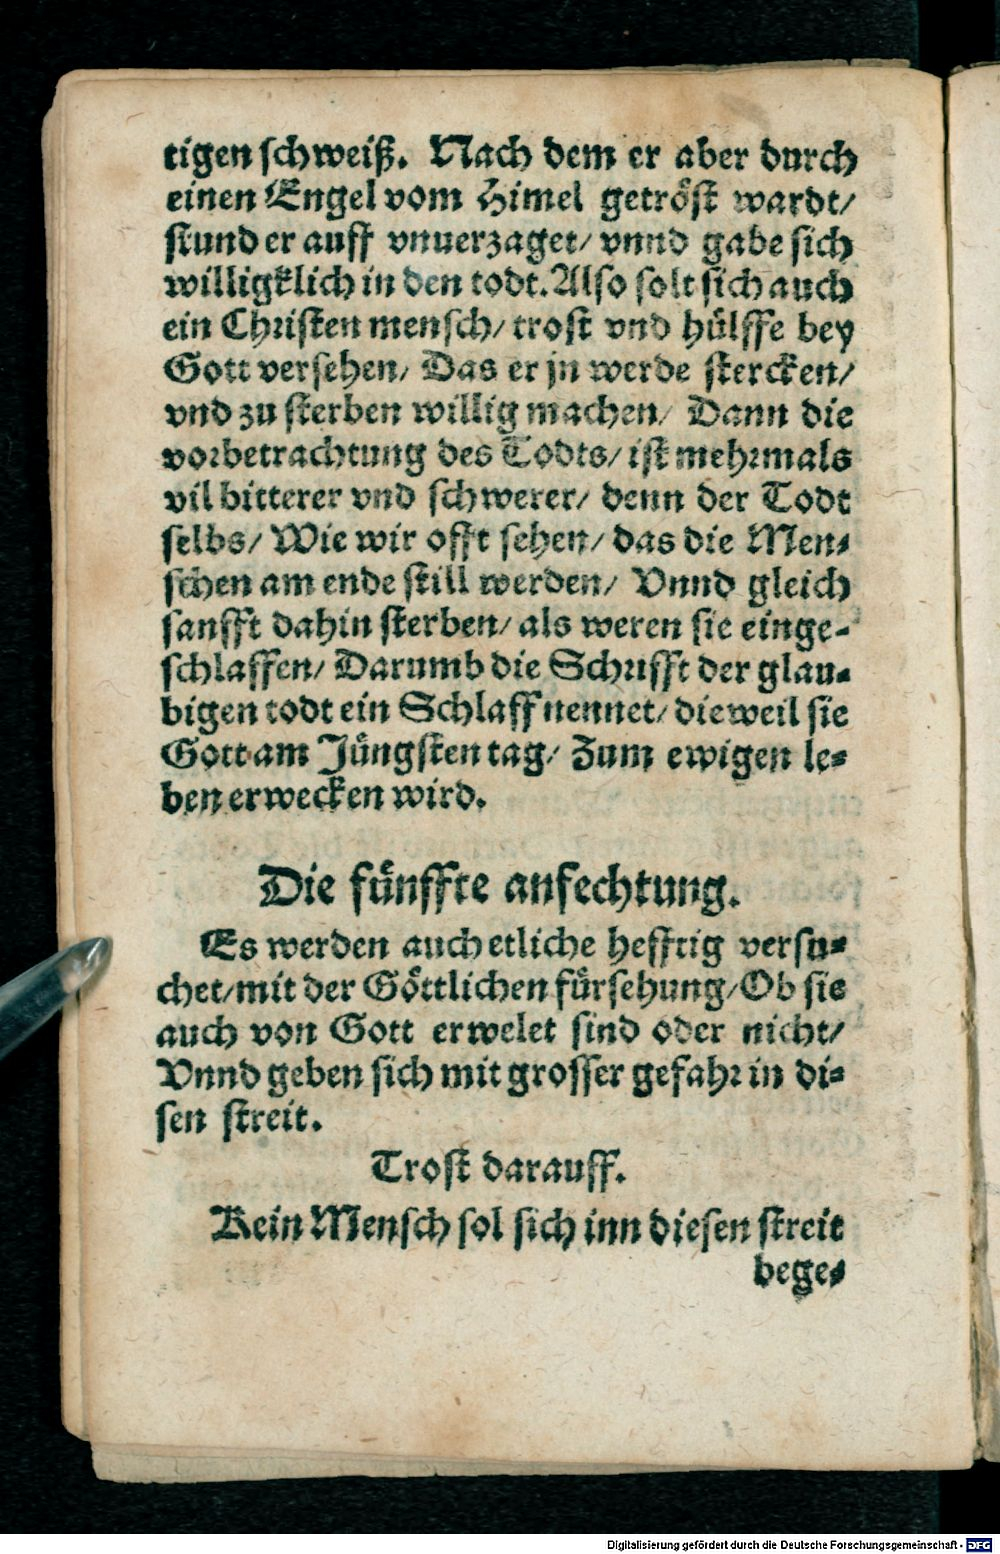 tigen schweiß. Nach dem er aber durch
einen Engel vom Himel getröst wardt/
stund er auff vnuerzaget/ vnnd gabe sich
willigklich in den todt. Also solt sich auch
ein Christen mensch/ trost vnd hülffe bey
Gott versehen/ Das er jn werde stercken/
vnd zu sterben willig machen/ Dann die
vorbetrachtung des Todts/ ist mehrmals
vil bitterer vnd schwerer/ denn der Todt
selbs/ Wie wir offt sehen/ das die Men-
schen am ende still werden/ Vnnd gleich
sanfft dahin sterben/ als weren sie einge-
schlaffen/ Darumb die Schrifft der glau-
bigen todt ein Schlaff nennet/ dieweil sie
Gott am Jüngsten tag/ Zum ewigen le-
ben erwecken wird.
Die fünffte anfechtung.
Es werden auch etliche hefftig versu-
chet/ mit der Göttlichen fürsehung/ Ob sie
auch von Gott erwelet sind oder nicht/
Vnnd geben sich mit grosser gefahr in di-
sen streit.
Trost darauff.
Kein Mensch sol sich inn diesen streit
bege-
Digitalisierung gefördert durch die Deutsche Forschungsgemeinschaft - DFG